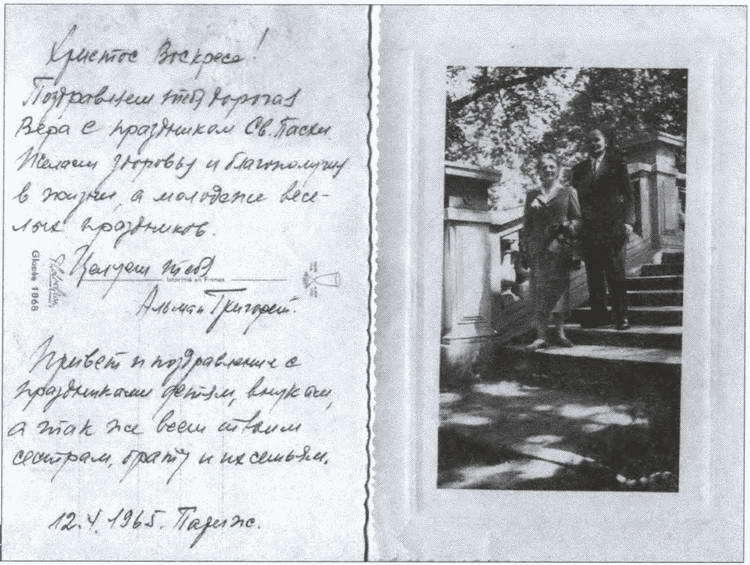 Христос Воскресе!
Поздравляем тебя дорогая
Вера с праздником Св. Пасхи
Желаем здоровья и благополучия
в жизни, а молодежи весе-
лых праздников.
Целуем тебя
Imprimé en France
Glacée 1868
Григорий.
Привет и поздравление с
праздниками детям, внукам,
а так же всем твоим
сестрам, брату и их семьям.
12.4.1965. Париж.